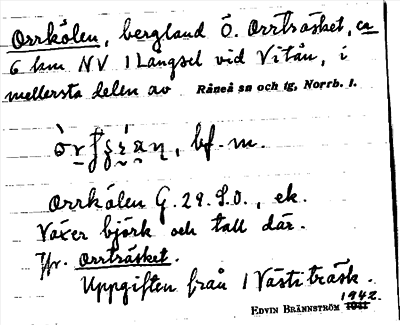 Orrkölen, bergland Ö. Orrträsket, ca
6 km NV Långsel vid Vitån, i
mellersta delen av Råneå sn och tg, Norrb. l.
bf. m.
Orrkölen G. 29. S.O., ek.
Växer björk och tall där.
Jfr. Orrträsket.
Uppgiften från Västiträsk.
1942.
EDVIN BRÄNNSTRÖM 1941